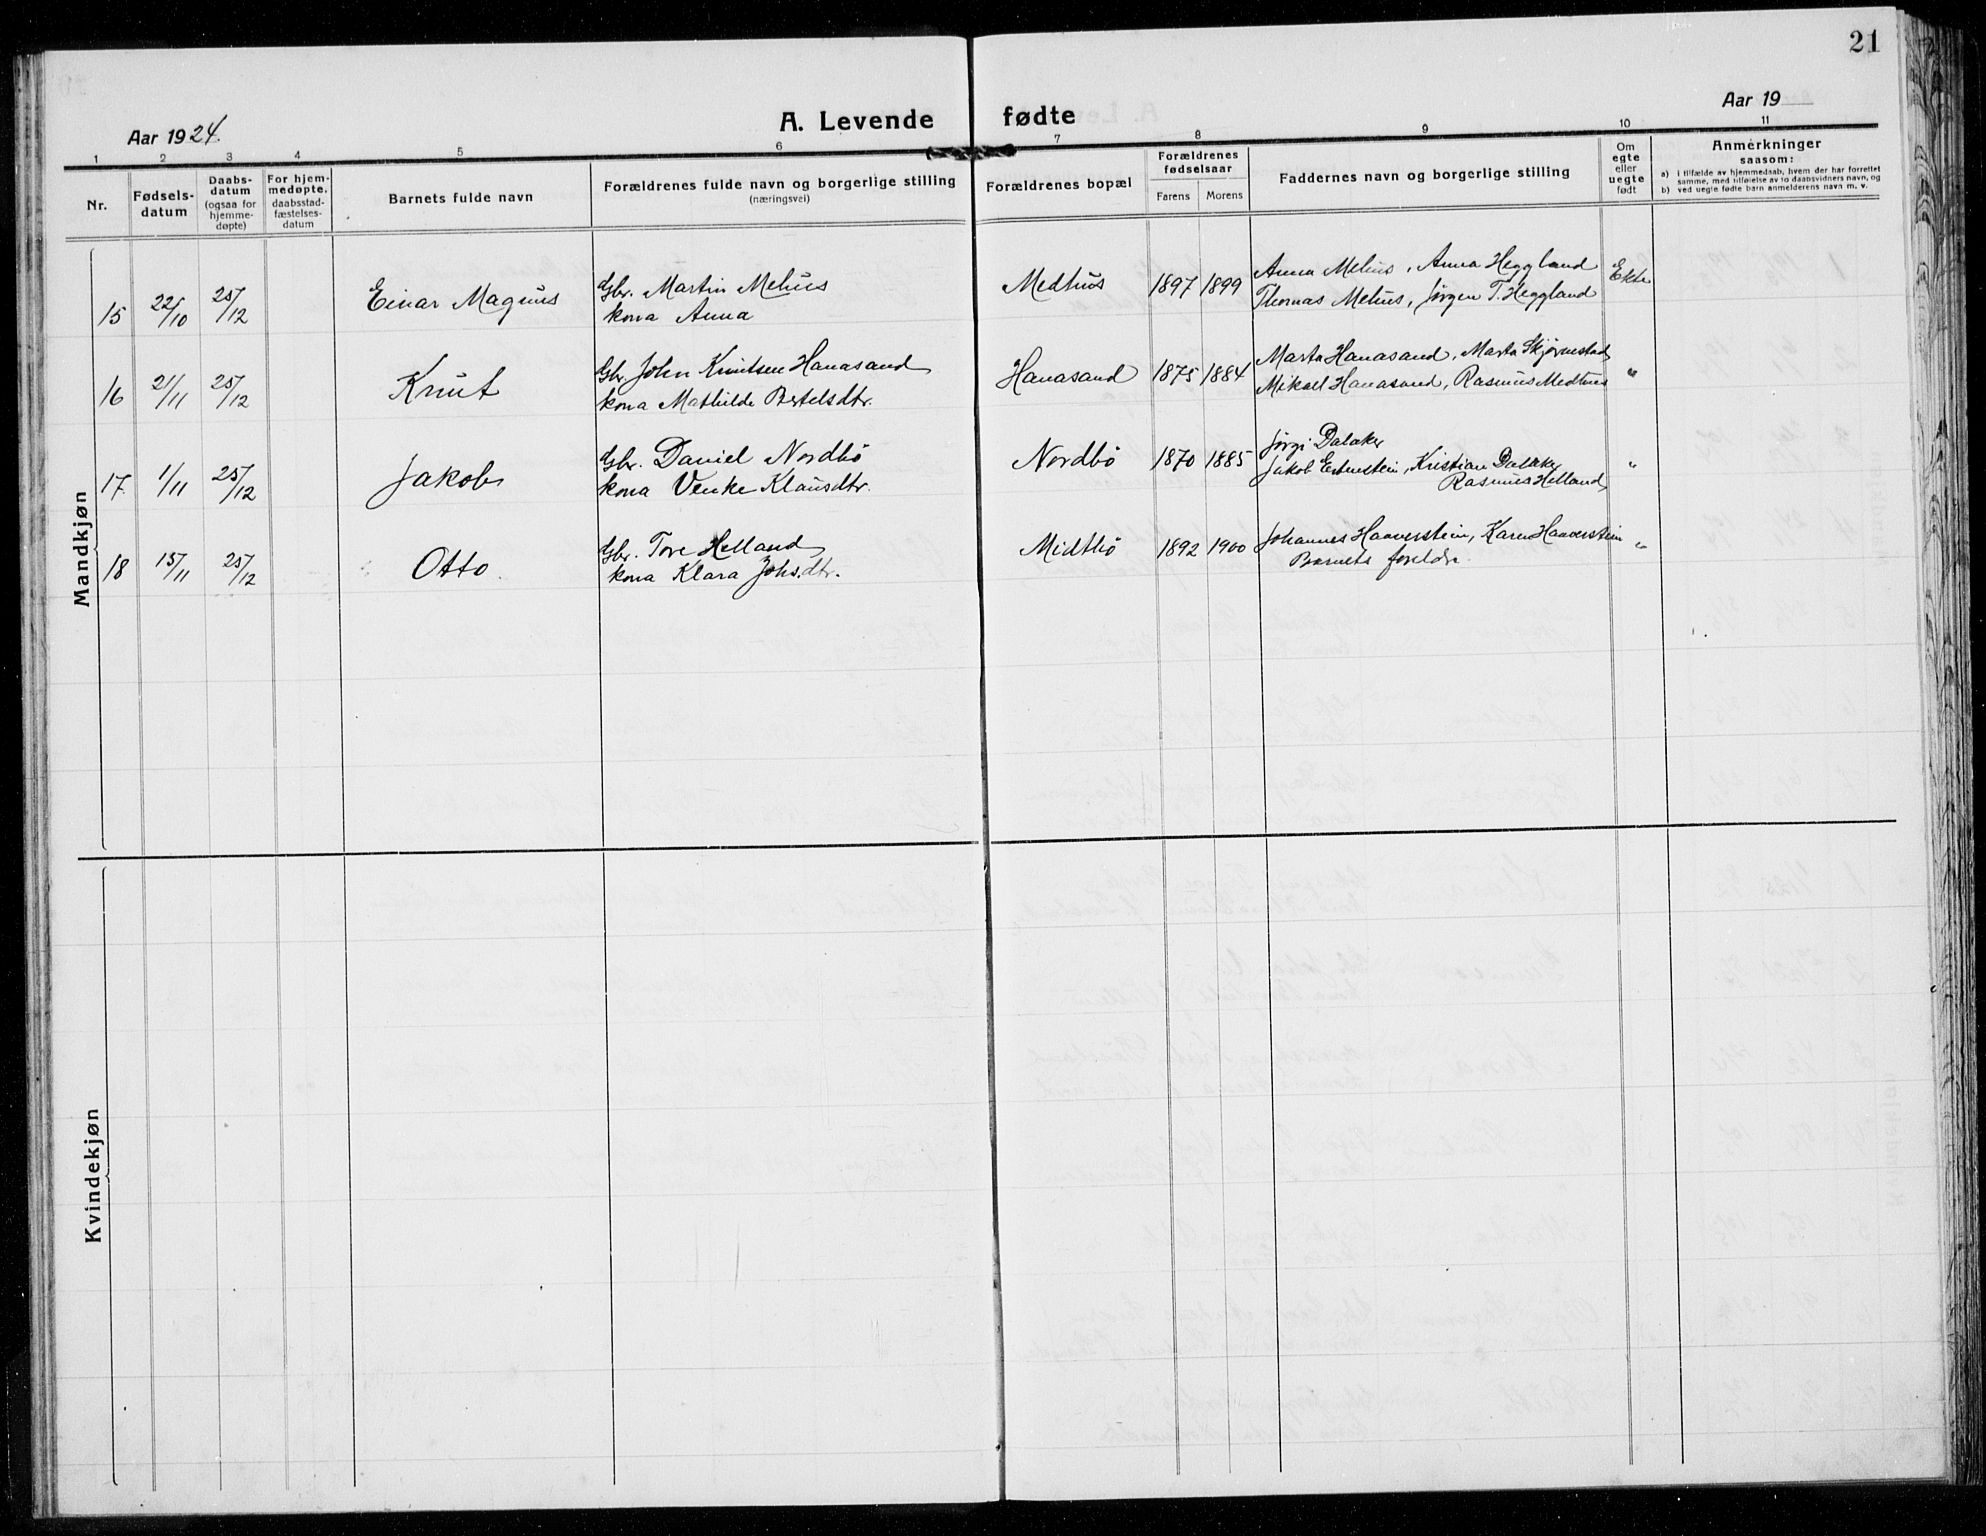 21
Aar 1924.
A. Levende fødte
Aar 19
1 2 3 4 5 6 7 8 9 10 11
Nr.
Fødsels-
datum
Daabs-
datum
(ogsaa for
hjemme-
døpte)
For hjem-
medøpte.
daabsstad-
fæstelses-
datum
Barnets fulde navn
Forældrenes fulde navn og borgerlige stilling
(næringsvei)
Forældrenes bopæl
Forældrenes
fødselsaar
Farens Morens
Faddernes navn og borgerlige stilling
Om
egte
eller
uegte
født
Anmerkninger
saasom:
a) i tilfælde av hjemmedaab, hvem der har forrettet
samme, med tilføielse av to daabsvidners navn, og
b) ved uegte fødte barn anmelderens navn m. v.
Mandkjøn
15 22/10 25/12 Einar Magnus
Gbr. Martin Mehus
kona Anna
Medhus 1897 1899
Anna Mehus, Anna Heggland
Thomas Mehus, Jørgen T. Heggland
Ekte
16 21/11 25/12 Knut
Gbr. John Knutsen Hanasand
kona Mathilde Bertelsdtr.
Hanasand 1875 1884
Marta Hanasand, Marta Skjørnestad
Mikael Hanasand, Rasmus Medhus
"
17. 1/11 25/12 Jakob
Gbr. Daniel Nordbø
kona Venke Klausdtr.
Nordbø 1870 1885
Jørgi Dalaker
Jakob Ertenstein, Kristian Dalaker
Rasmus Helland
"
18 15/11 25/12 Otto.
Gbr. Tore Helland
kona Klara Johs.dtr.
Midtbø 1892 1900
Johannes Haaverstein, Karen Haaverstein
Barnets foreldre.
"
Kvindekjøn